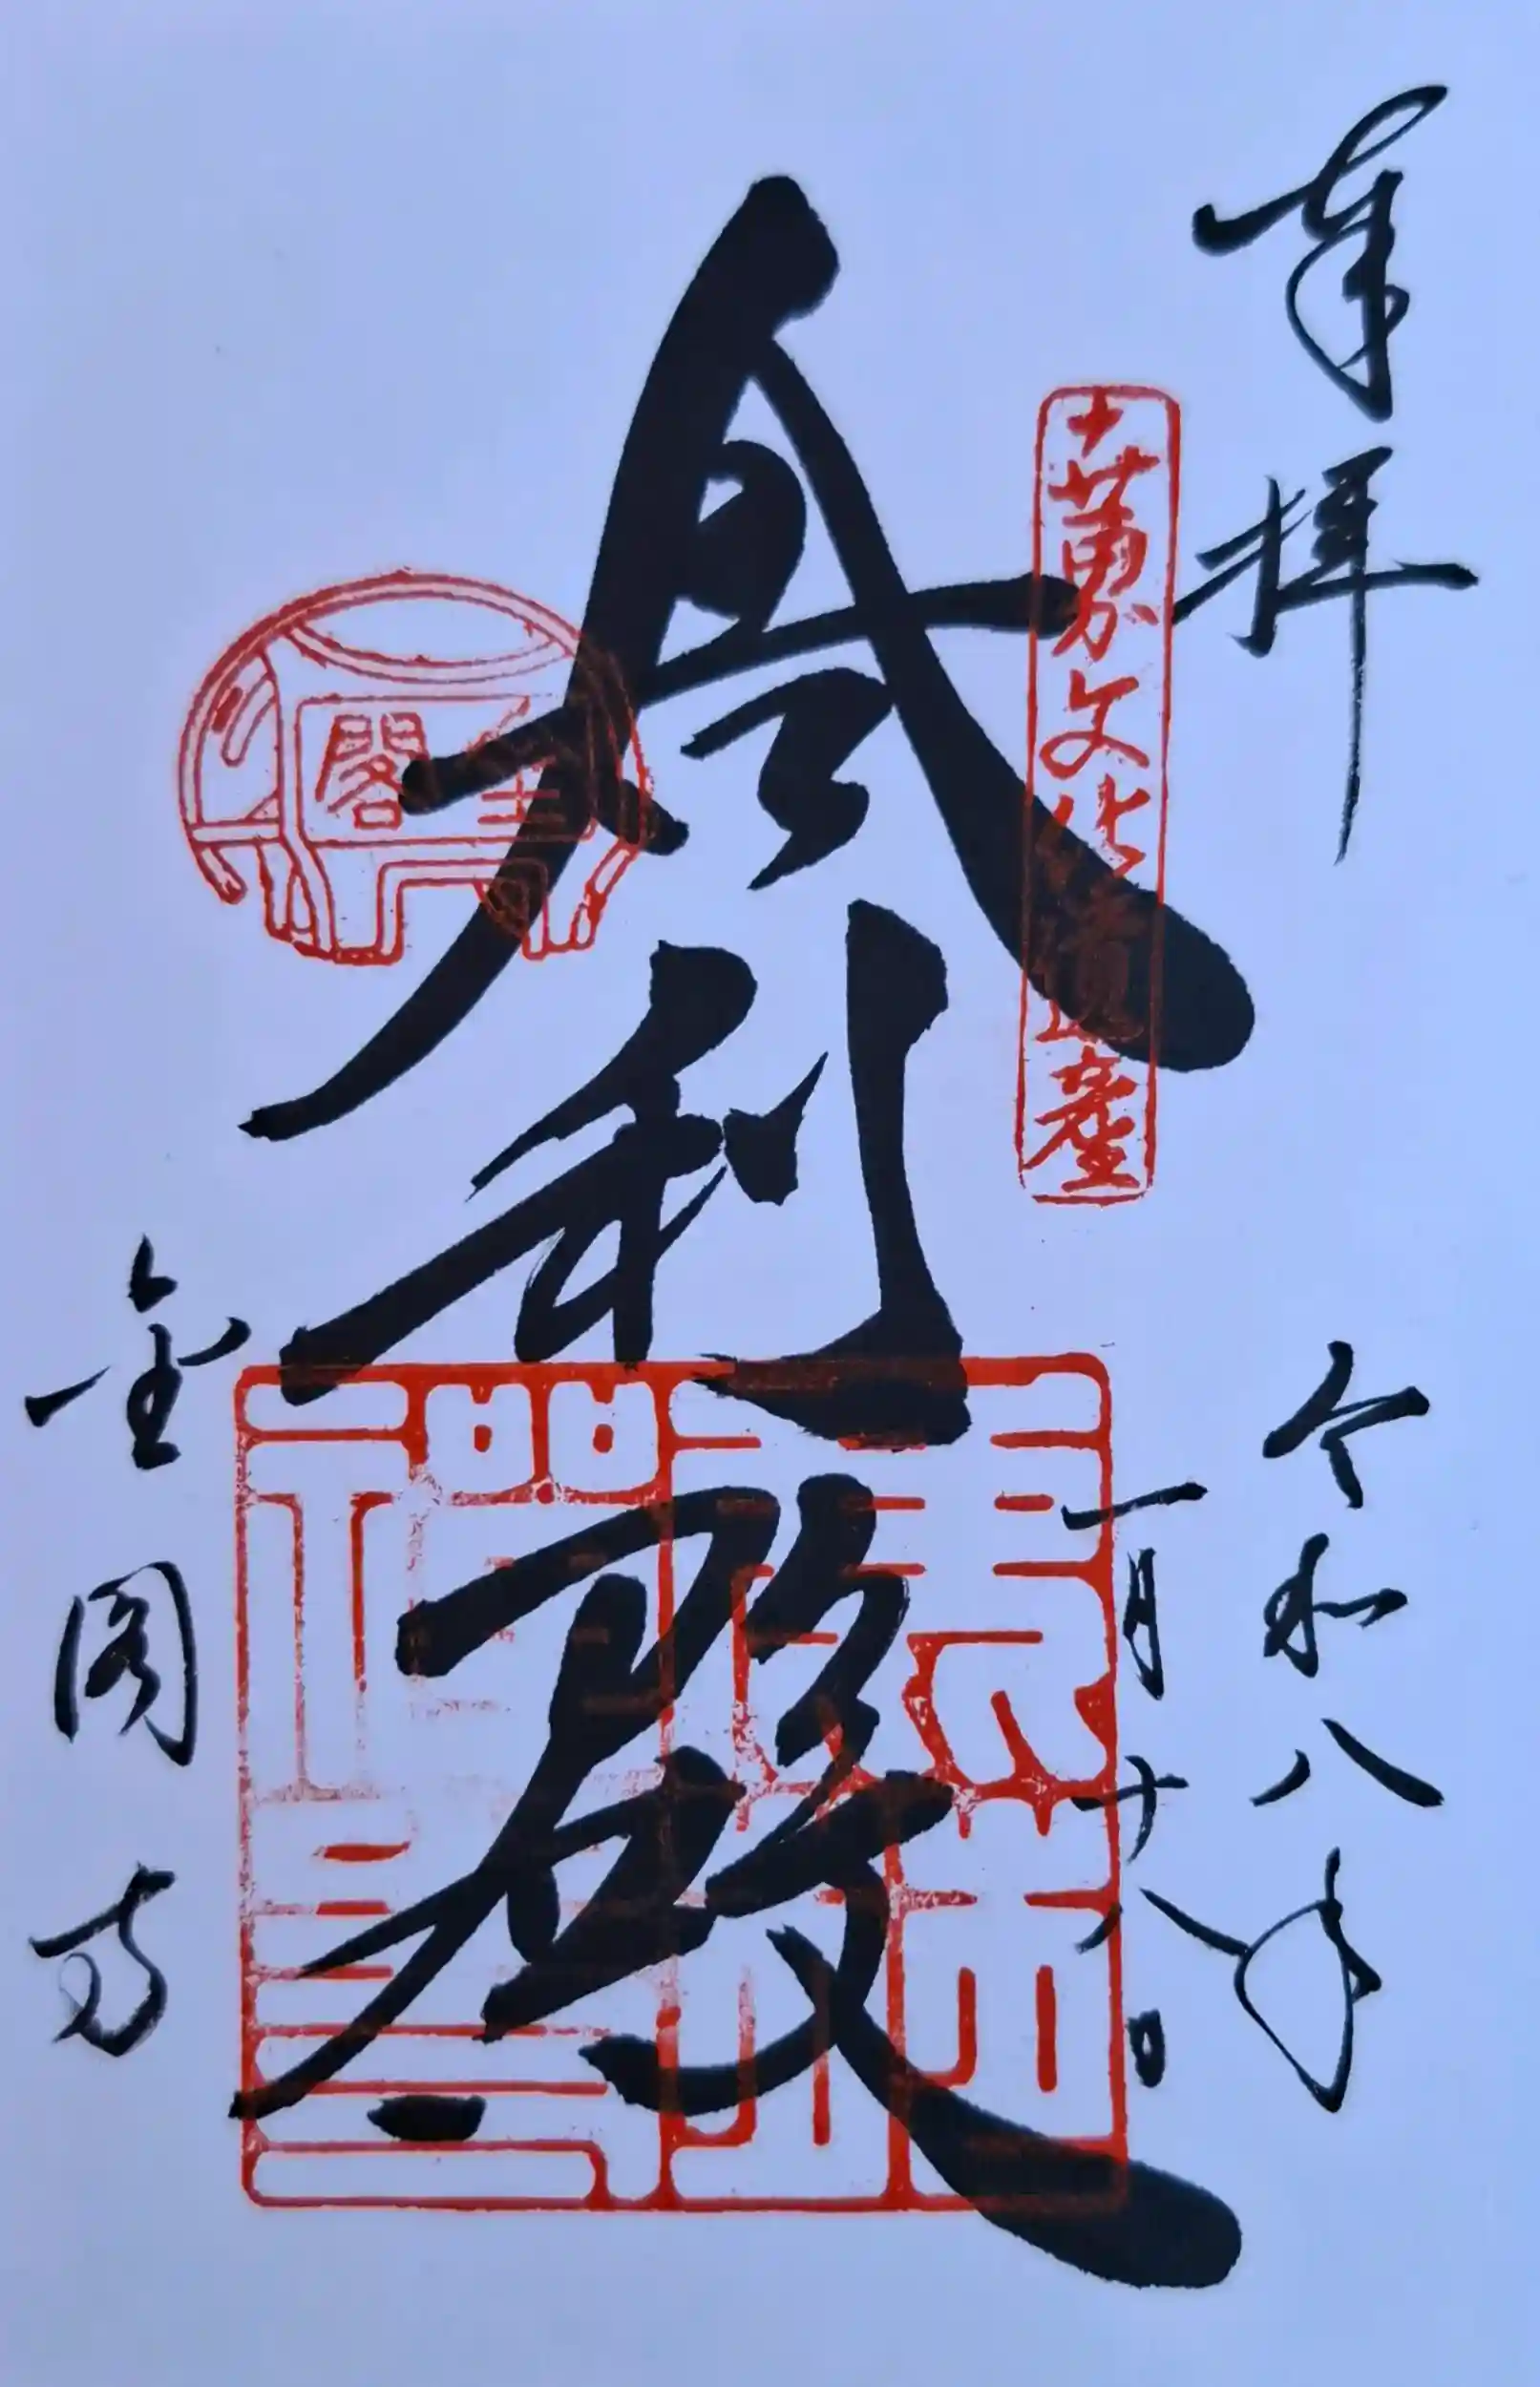 奉拝
令和八年
一月十八日
世界文化遺産
舎利殿
金閣
金閣寺